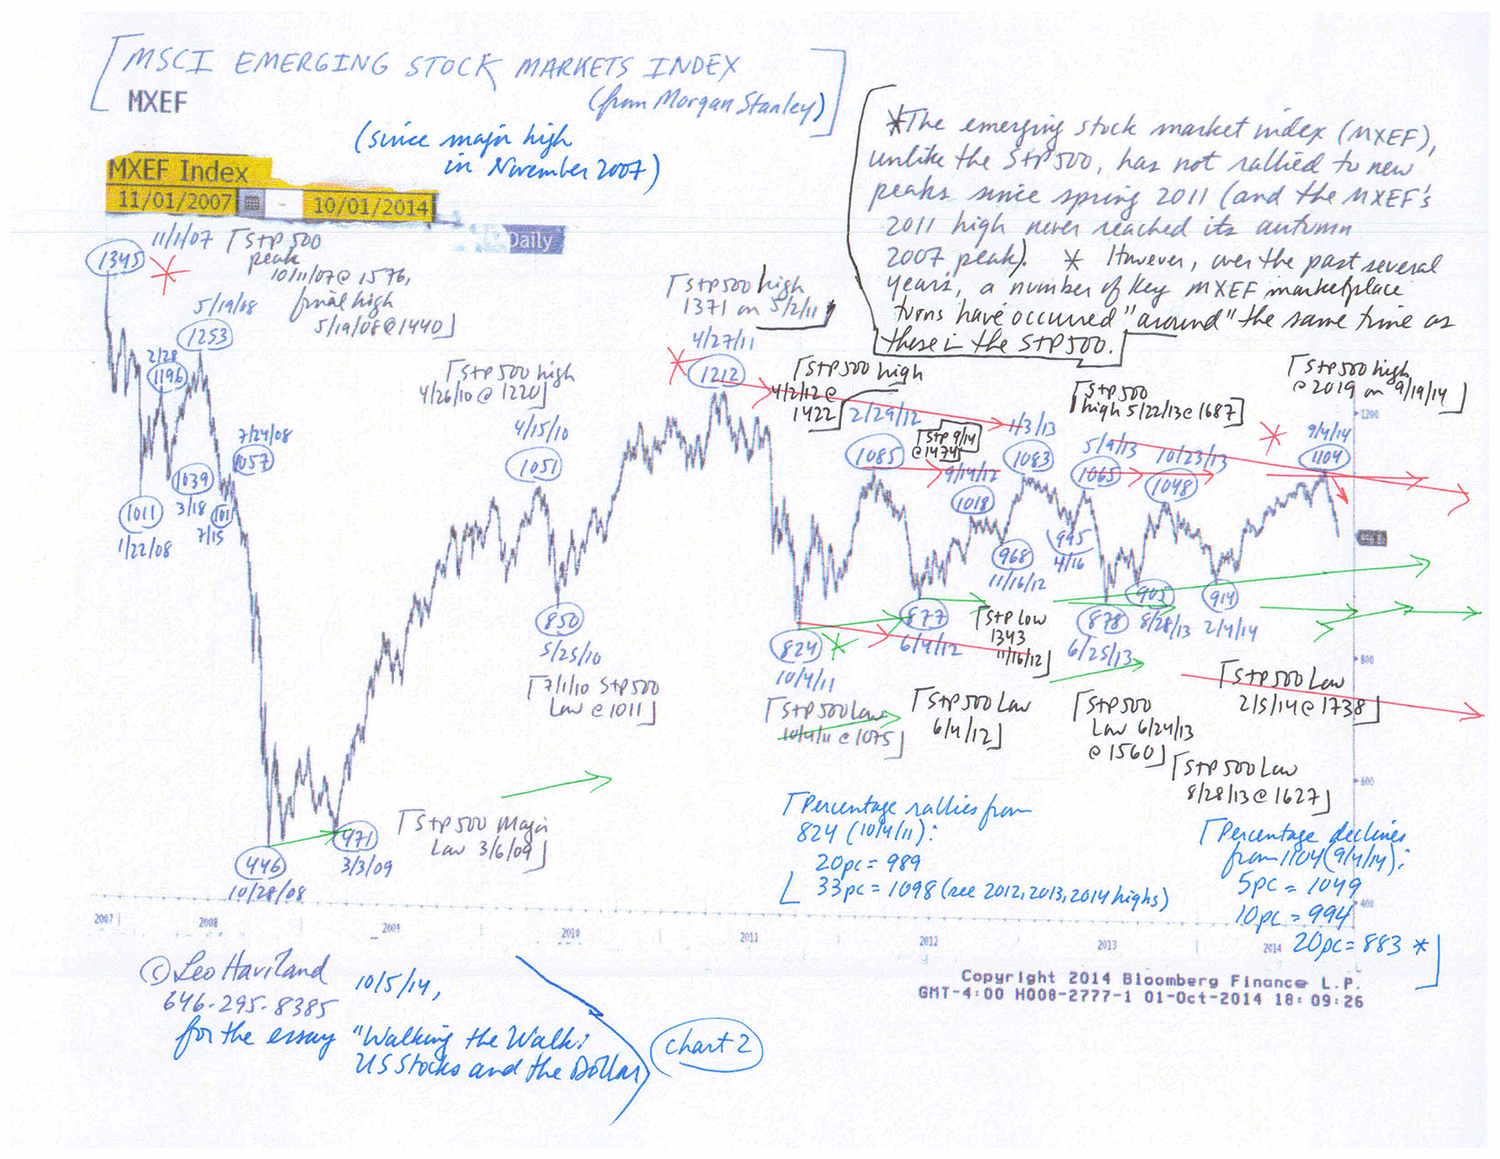 MSCI EMERGING STOCK MARKETS INDEX
MXEF
(from Morgan Stanley)
(since major high
in November 2007)
MXEF Index
11/01/2007 - 10/01/2014
Daily
*The emerging stock market index (MXEF),
unlike the S+P500, has not rallied to new
peaks since spring 2011 (and the MXEF's
2011 high never reached its autumn
2007 peak). * However, over the past several
years, a number of key MXEF marketplace
turns have occurred "around" the same time as
these in the S+P500.
1345
11/1/07
S+P 500
peak
10/11/07 @ 1576,
final high
5/19/08 @ 1440
5/19/08
1253
2/28
1196
7/24/08
1057
1039
3/18
1011
7/15
1011
1/22/08
S+P 500 high
4/26/10 @ 1220
4/15/10
1051
850
5/25/10
7/1/10 S+P 500
Low @ 1011
S+P 500 Major
Low 3/6/09
446
10/28/08
471
3/3/09
S+P 500 high
1371 on 5/2/11
4/27/11
1212
S+P 500 high
4/2/12 @
1422
2/29/12
1085
S+P 9/14
@ 1474
9/14/12
1018
1/3/13
1083
968
11/16/12
995
4/16
S+P 500
high 5/22/13 @ 1687
5/9/13
1065
10/23/13
1048
S+P 500 high
@ 2019 on 9/19/14
9/4/14
1104
824
10/4/11
877
6/4/12
S+P Low
1343
11/16/12
878
6/25/13
903
8/28/13
914
2/4/14
S+P 500 Low
10/4/11 @ 1075
S+P 500 Low
6/4/12
S+P 500
Low 6/24/13
@ 1560
S+P 500 Low
8/28/13 @ 1627
S+P 500 Low
2/5/14 @ 1738
1200
800
600
400
Percentage rallies from
824 (10/4/11):
20pc = 989
33pc = 1098 (see 2012, 2013, 2014 highs)
Percentage declines
from 1104 (9/4/14):
5pc = 1049
10pc = 994
20pc = 883 *
2007
2008
2009
2010
2011
2012
2013
2014
Copyright 2014 Bloomberg Finance L.P.
GMT-4:00 H008-2777-1 01-Oct-2014 18:09:26
© Leo Haviland
646-295-8385
10/5/14,
for the essay "Walking the Walk:
US Stocks and the Dollar
chart 2